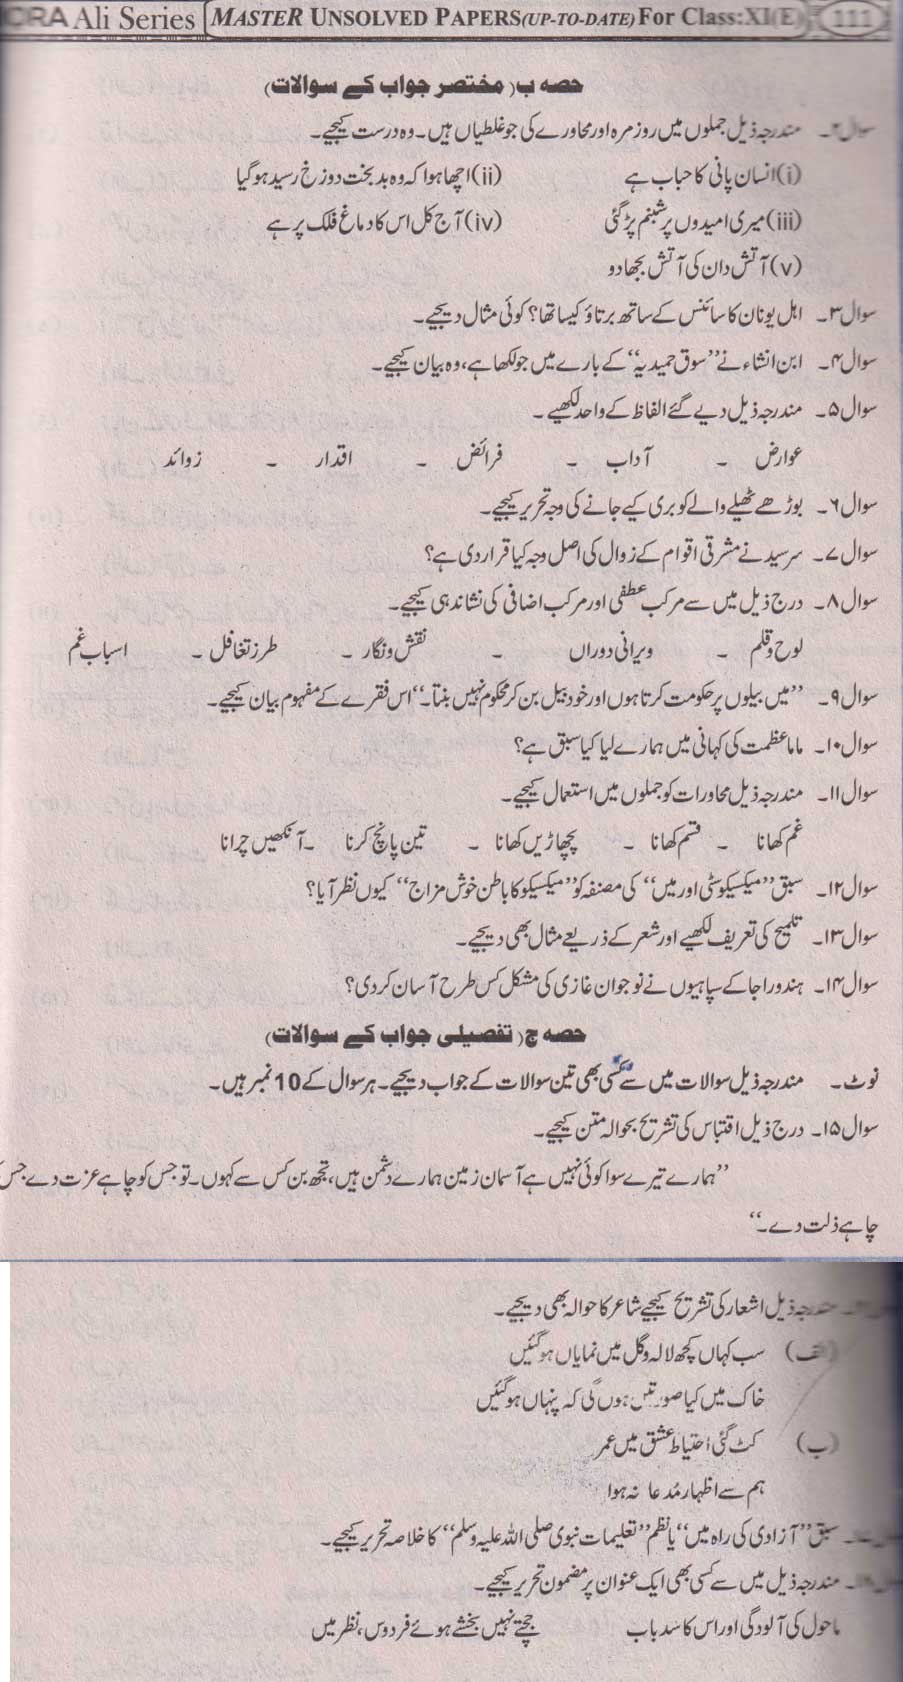 QRA Ali Series MASTER UNSOLVED PAPERS(UP-TO-DATE) For Class:XI(E) 111
حصہ ب( مختصر جواب کے سوالات)
سوال۲۔ مندرجہ ذیل جملوں میں روزمرہ اور محاورے کی جو غلطیاں ہیں۔ وہ درست کیجیے۔
(i) انسان پانی کا حباب ہے (ii) اچھا ہوا کہ وہ بدبخت دوزخ رسید ہوگیا
(iii) میری امیدوں پر شبنم پڑگئی (iv) آج کل اس کا دماغ فلک پر ہے
(v) آتش دان کی آتش بجھا دو
سوال۳۔ اہل یونان کا سائنس کے ساتھ برتاؤ کیسا تھا؟ کوئی مثال دیجیے۔
سوال۴۔ ابن انشاء نے ”سوق حمیدیہ“ کے بارے میں جو لکھا ہے، وہ بیان کیجیے۔
سوال۵۔ مندرجہ ذیل دیے گئے الفاظ کے واحد لکھیے۔
عوارض - آداب - فرائض - اقدار - زوائد
سوال۶۔ بوڑھے ٹھیلے والے کو بری کیے جانے کی وجہ تحریر کیجیے۔
سوال۷۔ سرسید نے مشرقی اقوام کے زوال کی اصل وجہ کیا قرار دی ہے؟
سوال۸۔ درج ذیل میں سے مرکب عطفی اور مرکب اضافی کی نشاندہی کیجیے۔
لوح وقلم - ویرانی دوراں - نقش ونگار - طرز تغافل - اسباب غم
سوال۹۔ ”میں بیلوں پر حکومت کرتا ہوں اور خود بیل بن کر محکوم نہیں بنتا۔“ اس فقرے کے مفہوم بیان کیجیے۔
سوال۱۰۔ ماما عظمت کی کہانی میں ہمارے لیا کیا سبق ہے؟
سوال۱۱۔ مندرجہ ذیل محاورات کو جملوں میں استعمال کیجیے۔
غم کھانا - قسم کھانا - پچھاڑیں کھانا - تین پانچ کرنا - آنکھیں چرانا
سوال۱۲۔ سبق ”میکسیکو سٹی اور میں“ کی مصنفہ کو ”میکسیکو کا باطن خوش مزاج“ کیوں نظر آیا؟
سوال۱۳۔ تلمیح کی تعریف لکھیے اور شعر کے ذریعے مثال بھی دیجیے۔
سوال۱۴۔ ہندو راجا کے سپاہیوں نے نوجوان غازی کی مشکل کس طرح آسان کردی؟
حصہ ج( تفصیلی جواب کے سوالات)
نوٹ۔ مندرجہ ذیل سوالات میں سے کسی بھی تین سوالات کے جواب دیجیے۔ ہر سوال کے 10 نمبر ہیں۔
سوال۱۵۔ درج ذیل اقتباس کی تشریح بحوالہ متن کیجیے۔
”ہمارے تیرے سوا کوئی نہیں ہے آسمان زمین ہمارے دشمن ہیں، تجھ بن کس سے کہوں۔ تو جس کو چاہے عزت دے جس
چاہے ذلت دے۔“
مندرجہ ذیل اشعار کی تشریح کیجیے شاعر کا حوالہ بھی دیجیے۔
(الف) سب کہاں کچھ لالہ وگل میں نمایاں ہوگئیں
خاک میں کیا صورتیں ہوں گی کہ پنہاں ہوگئیں
(ب) کٹ گئی احتیاط عشق میں عمر
ہم سے اظہار مُدعا نہ ہوا
سبق ”آزادی کی راہ میں“ یا نظم ”تعلیمات نبوی صلی اللہ علیہ وسلم“ کا خلاصہ تحریر کیجیے۔
مندرجہ ذیل میں سے کسی بھی ایک عنوان پر مضمون تحریر کیجیے۔
ماحول کی آلودگی اور اس کا سدباب جچتے نہیں بخشے ہوئے فردوس، نظر میں